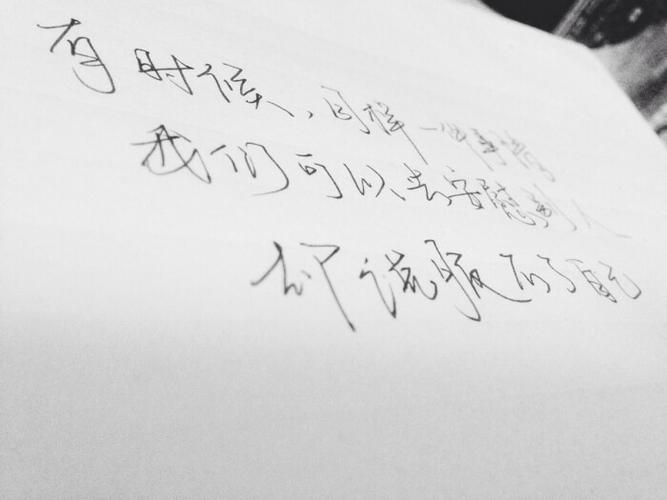 有时候，同样一件事情
我们可以去安慰别人
却说服不了自己